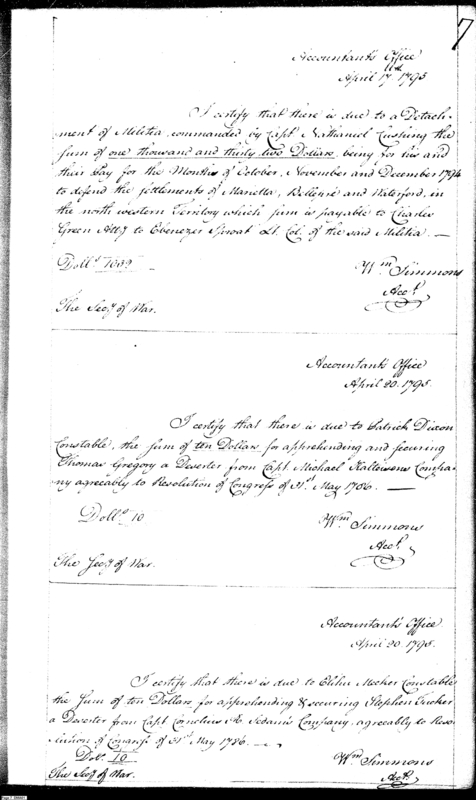 7
Accountant's Office
April 17th 1795
I certify that there is due to a Detach-
ment of Militia commanded by Capt. Nathaniel Cushing the
sum of one thousand and thirty two Dollars, being for his and
their Pay for the Months of October, November and December 1794
to defend the settlements of Marietta, Bellepre and Waterford, in
the north western Territory which sum is payable to Charles
Green Atty to Ebenezer Sproat Lt. Col. of the said Militia. —
Dolls
Wm Simmons
Acct.
The Secy of War.
Accountant's Office
April 20. 1795.
I certify that there is due to Patrick Dixon
Constable, the sum of ten Dollars for apprehending and securing
Thomas Gregory a Deserter from Capt. Michael Kalteisens Compa-
ny agreeably to Resolution of Congress of 31st May 1786. —
Dolls 10
Wm Simmons
Acct.
The Secy of War.
Accountant's Office
April 20. 1795.
I certify that there is due to Elihu Meeker Constable
the Sum of ten Dollars for apprehending & securing Stephen Tucker
a Deserter from Capt Cornelius R. Sedam's Company agreeably to Reso-
lution of Congress of 31st May 1786. —
Dolls. 10
Wm Simmons
Acct.
The Secy of War.